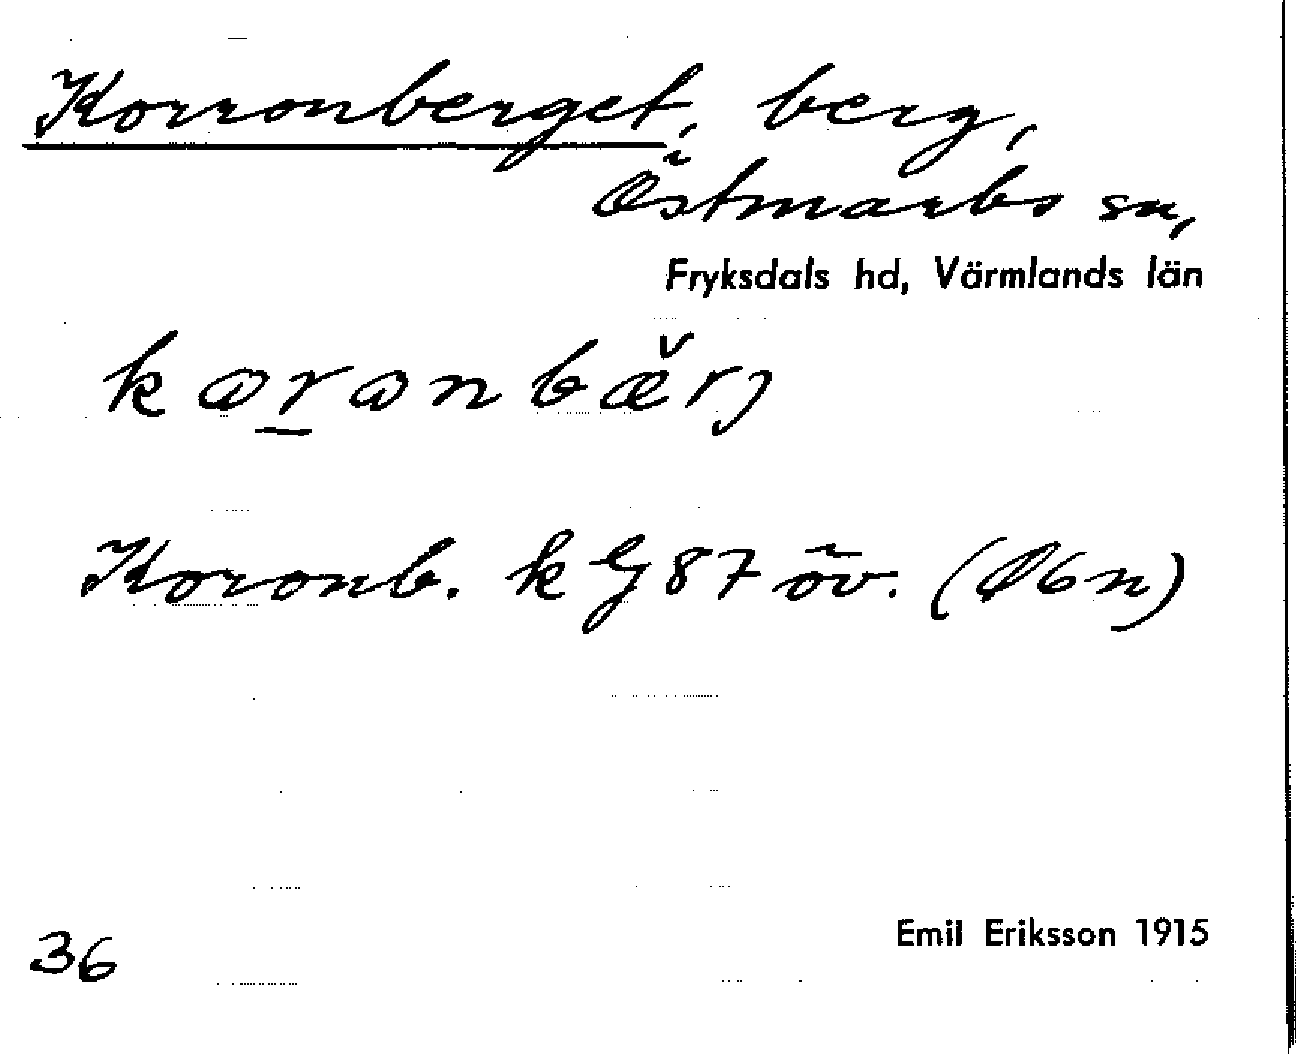 Korronberget, berg,
Östmarks sn,
Fryksdals hd, Värmlands län
karanbærj
Koronb. k G 87 öv. (Ö6n)
36
Emil Eriksson 1915